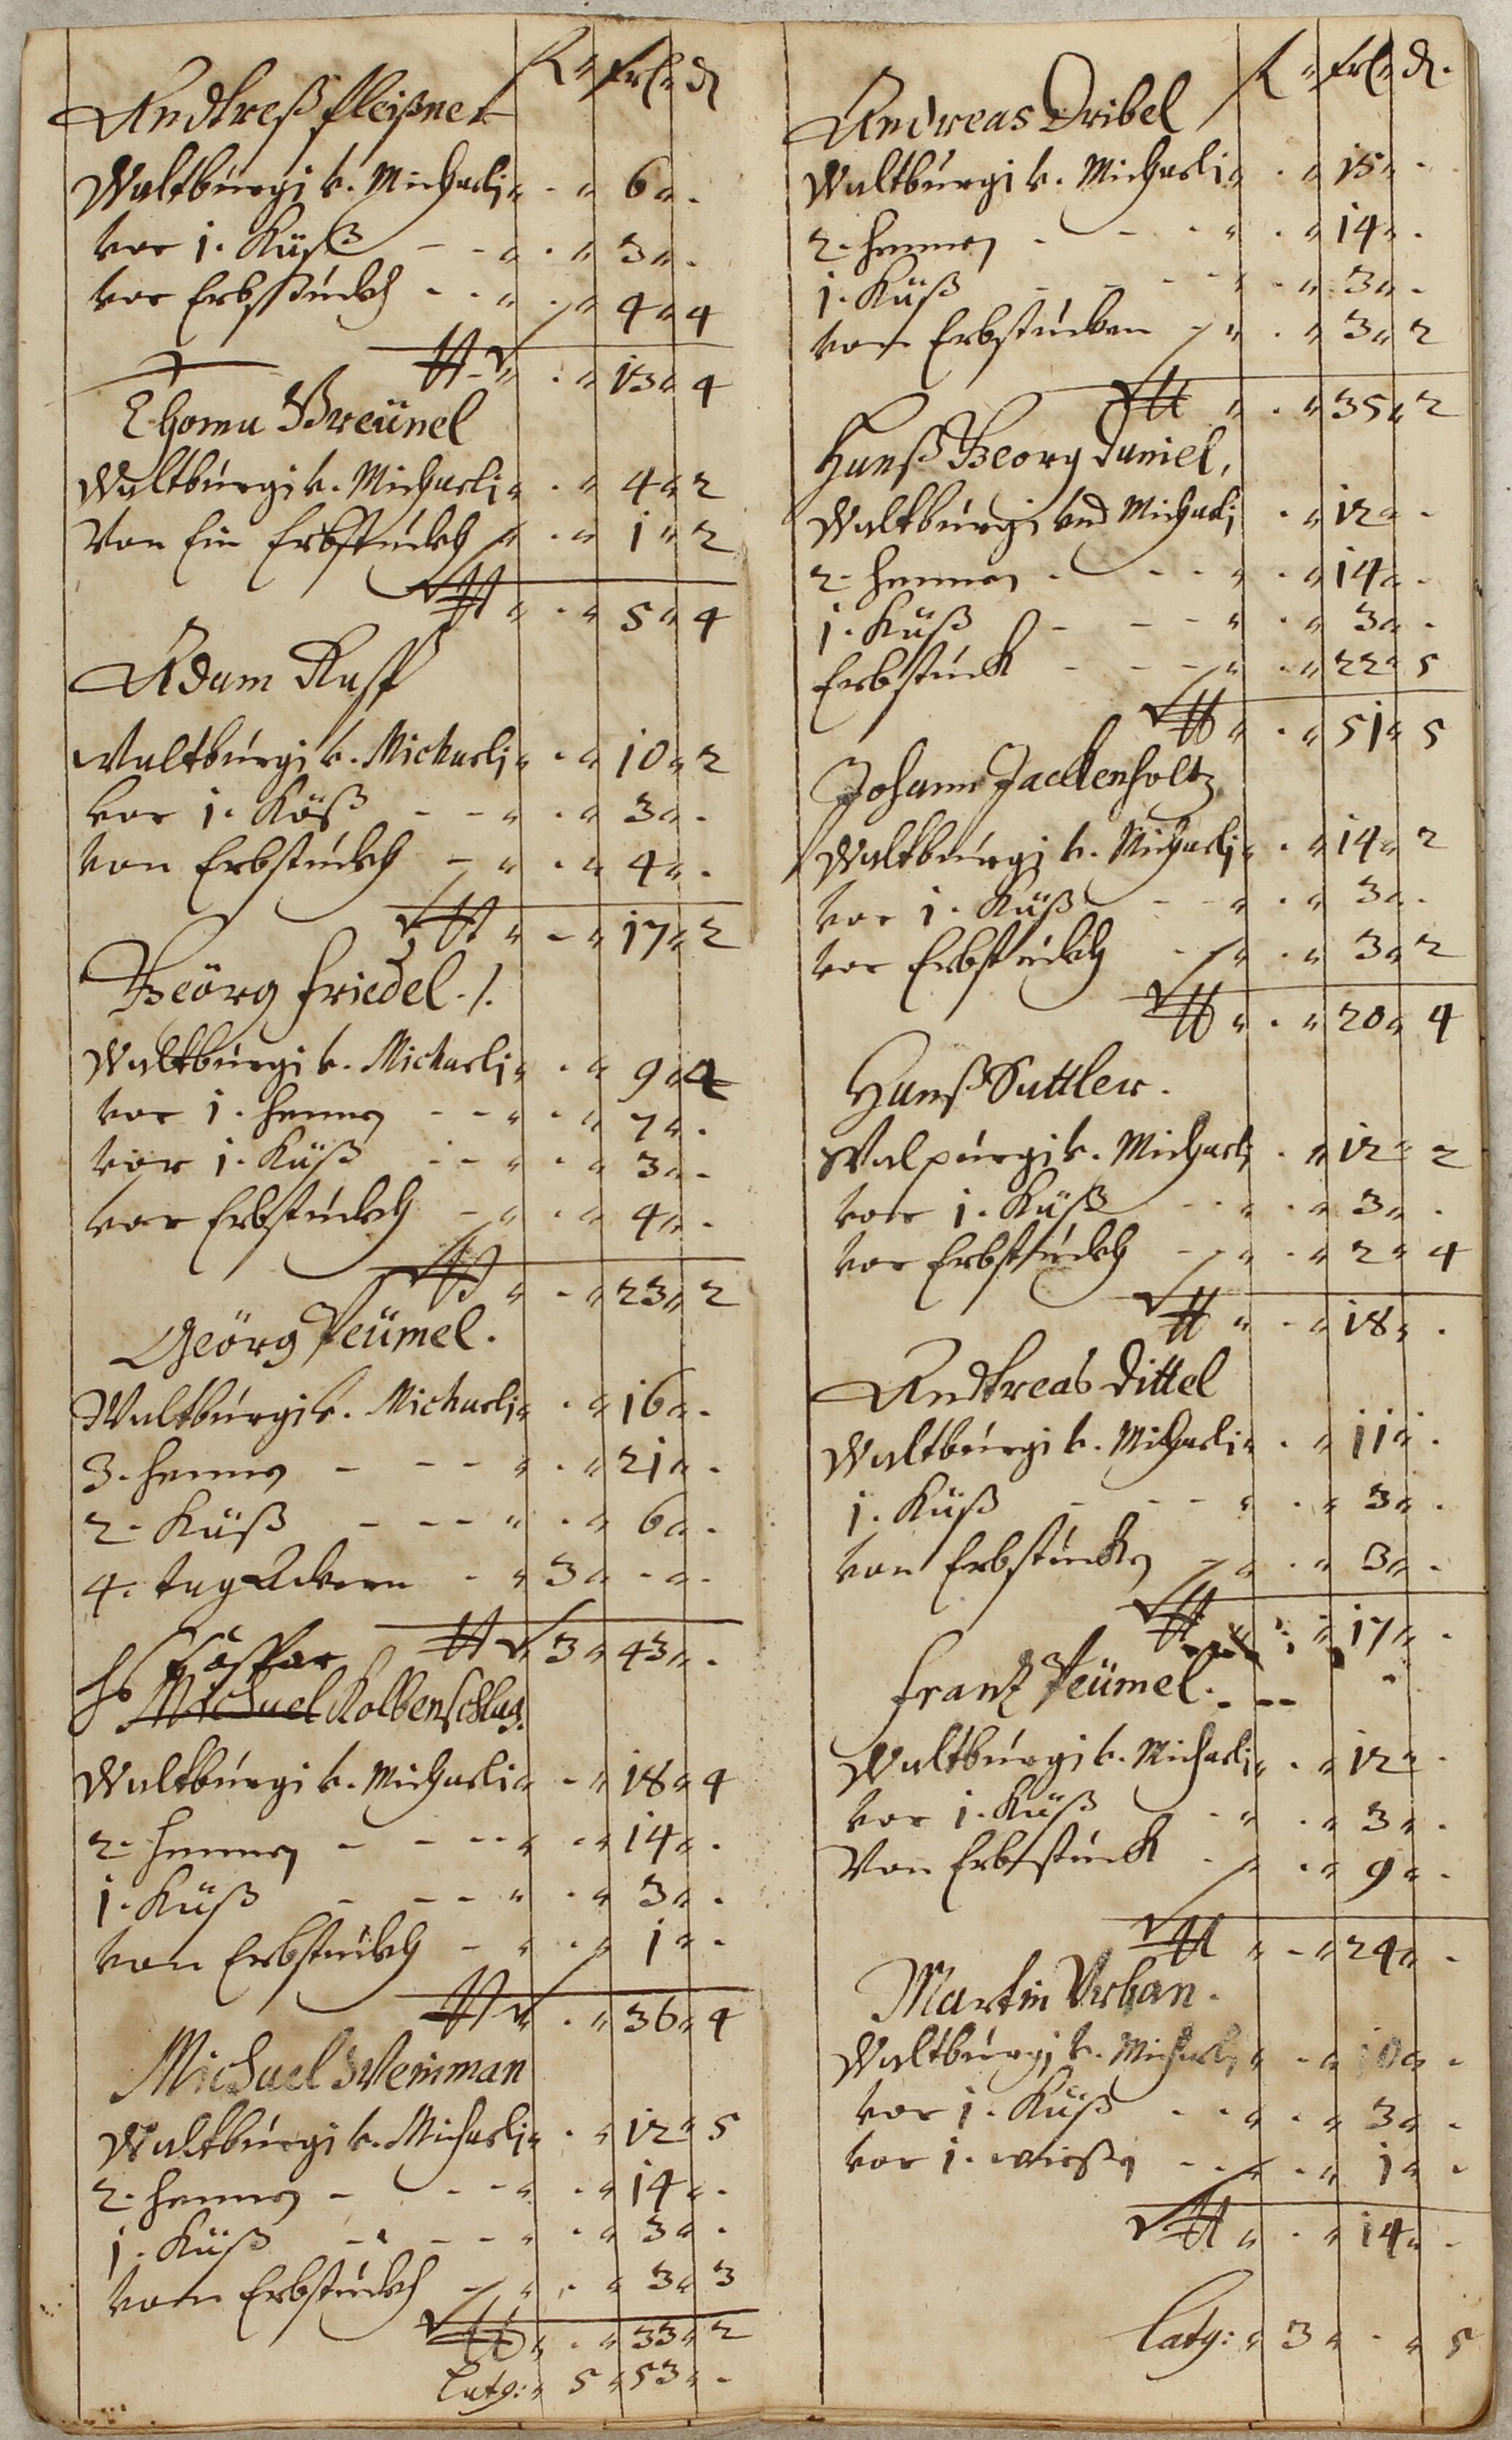 R " Krl " d
Andtreß fleißner
Waltburgi v. Michaeli " - " 6 " -
vor 1. Käß - - " - " 3 " -
vor Erbstückh - - " - " 4 " 4
" - " 13 " 4
Thoma Breünel
Waltburgi v. Michaeli " - " 4 " 2
Von Ein Erbstückh " - " 1 " 2
" - " 5 " 4
Adam Rasp
Waltburgi v. Michaeli " - " 10 " 2
vor 1. Käß - - " - " 3 " -
von Erbstückh - " - " 4 " -
" - " 17 " 2
Geörg Friedel ./.
Waltburgi v. Michaeli " - " 9 " 2
vor 1. henn - - " - " 7 " -
vor 1. Käß - - " - " 3 " -
vor Erbstückh - " - " 4 " -
" - " 23 " 2
Geörg Peümel.
Waltburgi v. Michaeli " - " 16 " -
3. henn - - - " - " 21 " -
2. Käß - - - " - " 6 " -
4. tag Ackern - " 3 " - " -
" 3 " 43 " -
Hß Caspar
Michael Kolbenschlag.
Waltburgi v. Michaeli " - " 18 " 4
2. hennen - - - - " - " 14 " -
1. Käß - - - " - " 3 " -
von Erbstückh - " - " 1 " -
" - " 36 " 4
Michael Weinman
Waltburgi v. Michaeli " - " 12 " 5
2. hennen - - - " - " 14 " -
1. Käß - - - - " - " 3 " -
von Erbstückh - " - " 3 " 3
" - " 33 " 2
Latg: " 5 " 53 " -
R " Krl " d.
Andreas Dribel
Waltburgi v. Michaeli " - " 15 " -
2. hennen - - - " - " 14 " -
1. Käß - - - " - " 3 " -
von Erbstücken - " - " 3 " 2
" - " 35 " 2
Hanß Georg Daniel,
Waltburgi und Michaeli - " 12 " -
2. hennen - - - " - " 14 " -
1. Käß - - - " - " 3 " -
Erbstück - - - " - " 22 " 5
" - " 51 " 5
Johann Jackenholtz
Waltburgi v. Michaeli " - " 14 " 2
vor 1. Käß - - " - " 3 " -
vor Erbstückh - " - " 3 " 2
" - " 20 " 4
Hanß Sattler.
Walpurgi v. Michaeli - " 12 " 2
vor 1. Käß - - " - " 3 " -
vor Erbstückh - " - " 2 " 4
" - " 18 " -
Andtreas Dittel
Waltburgi v. Michaeli " - " 11 " -
1. Käß - - - " - " 3 " -
von Erbstückh - " - " 3 " -
" - " 17 " -
Frantz Peümel.
Waltburgi v. Michaeli " - " 12 " -
vor 1. Käß - " - " 3 " -
Von Erbstück - " - " 9 " -
" - " 24 " -
Martin Urban.
Waltburgi v. Michaeli " - " 10 " -
vor 1. Käß - - " - " 3 " -
vor 1. wießen - - " - " 1 " -
" - " 14 " -
Latg: " 3 " - " 5